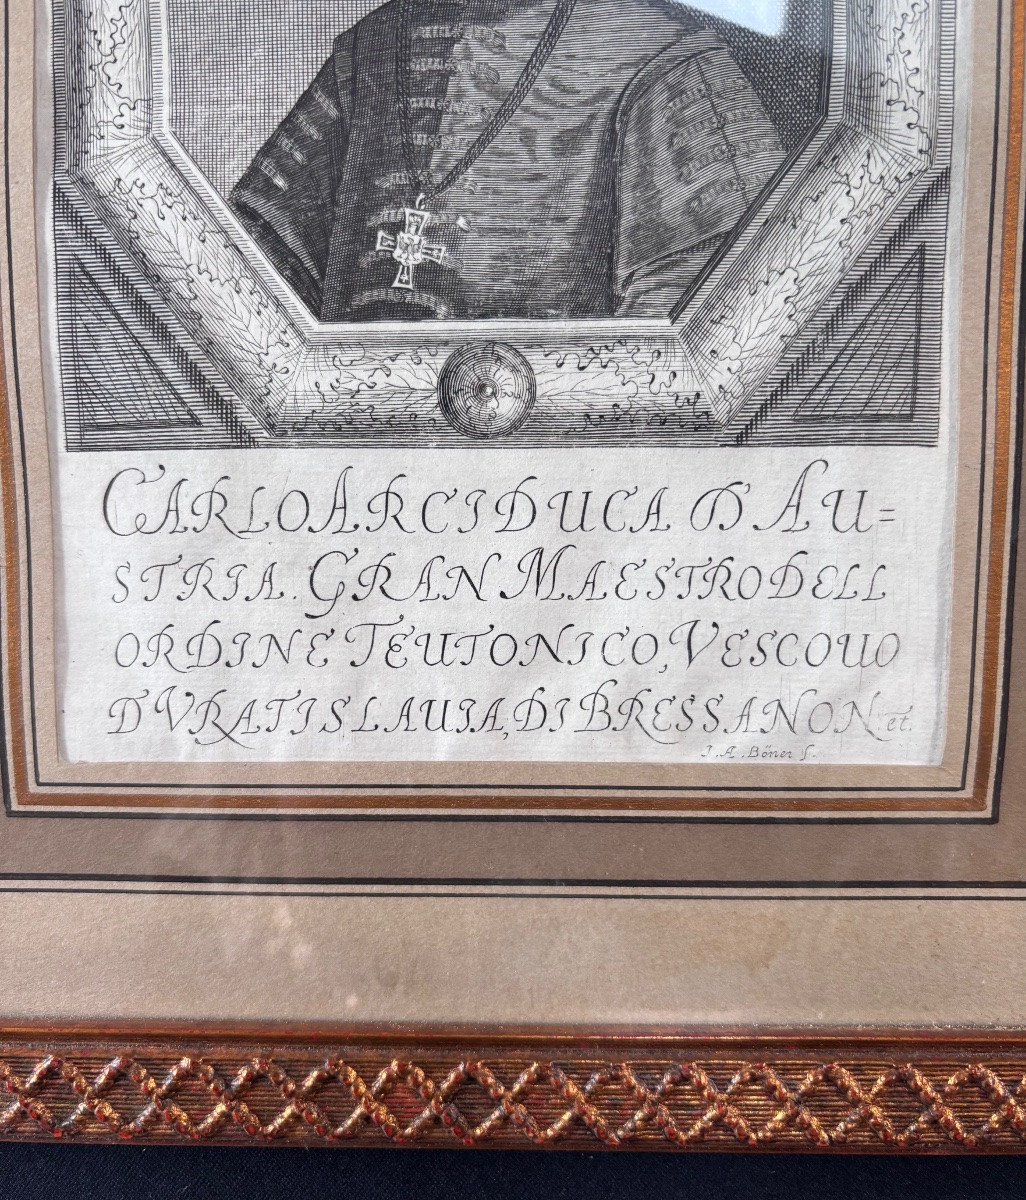 CARLO ARCIDUCA D'AU=
STRIA. GRAN MAESTRO DELL
ORDINE TEUTONICO, VESCOUO
D'VRATISLAUIA, DI BRESSANON. et.
J. A. Böner f.